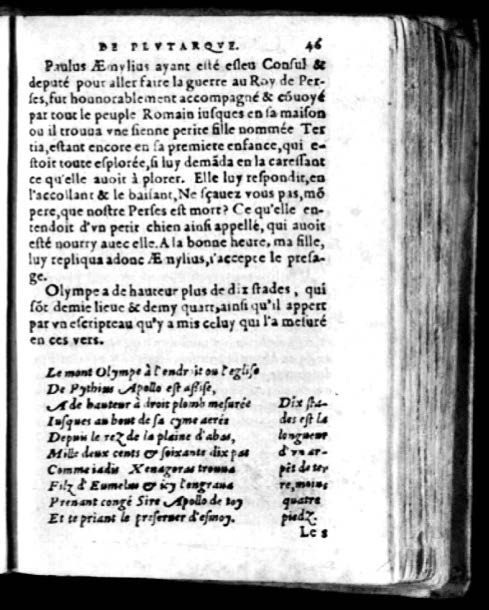 DE PLVTARQVE. 46
Paulus Æmylius ayant esté esleu Consul &
deputé pour aller faire la guerre au Roy de Per-
ses, fut hounorablement accompagné & cõuoyé
par tout le peuple Romain iusques en sa maison
ou il trouua vne sienne petite fille nommée Ter
tia, estant encore en sa premiere enfance, qui e-
stoit toute esplorée, si luy demãda en la caressant
ce qu'elle auoit à plorer. Elle luy respondit, en
l'accollant & le baisant, Ne sçauez vous pas, mõ
pere, que nostre Perses est mort? Ce qu'elle en-
tendoit d'vn petit chien ainsi appellé, qui auoit
esté nourry auec elle. A la bonne heure, ma fille,
luy repliqua adonc Æmylius, i'accepte le presa-
ge.
Olympe a de hauteur plus de dix stades, qui
sõt demie lieue & demy quart, ainsi qu'il appert
par vn escripteau qu'y a mis celuy qui l'a mesuré
en ces vers.
Le mont Olympe à l'endroit ou l'eglise
De Pythius Apollo est assise,
A de hauteur à droit plomb mesurée
Iusques au bout de sa cyme aerée
Depuis le rez de la plaine d'abas,
Mille deux cents & soixante dix pas
Comme iadis Xenagoras trouua
Filz d'Eumelus & icy l'engraua
Prenant congé Sire Apollo de toy
Et te priant le preseruer d'esmoy.
Dix sta-
des est la
longueur
d'vn ar-
pẽt de ter
re, moins
quatre
piedz.
Les